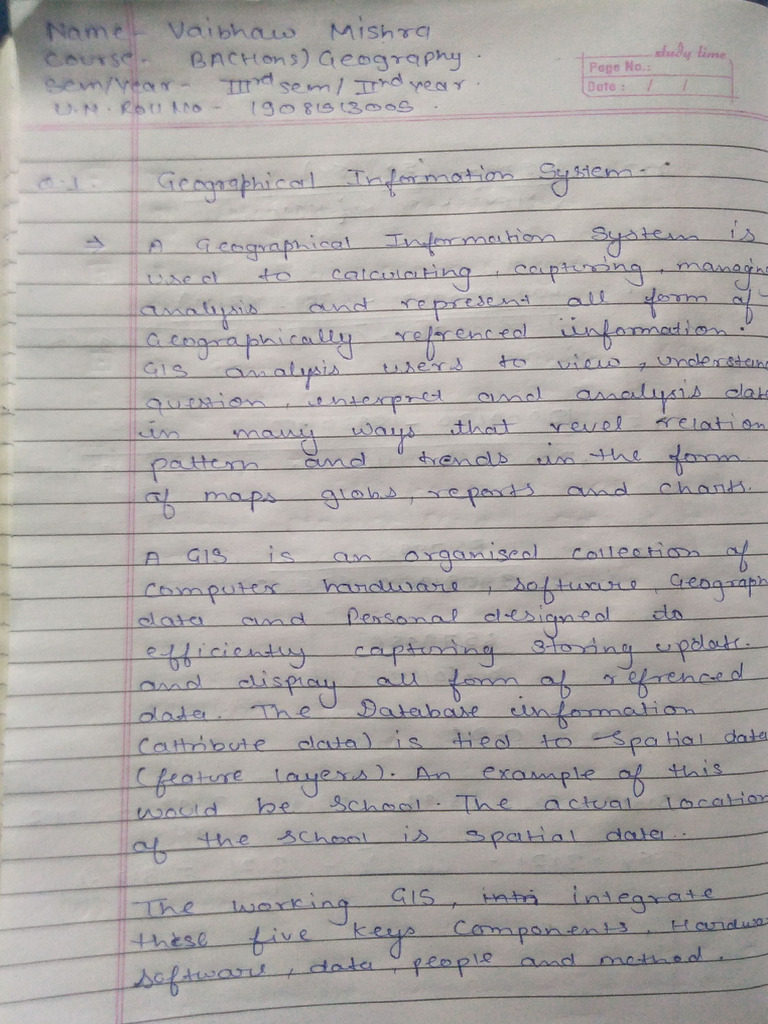 Name- Vaibhaw Mishra
Course- BA(Hons) Geography.
Sem/Year- IIIrd sem / IInd year.
U.N. Roll No - 19081513005.
study time
Page No.:
Date: / /
Q.1. Geographical Information System.
→ A Geographical Information System is
used to calculating, capturing, managing
analysis and represent all form of
Geographically refrenced information.
GIS analysis users to view, understan
question, interpret and analysis data
in many ways that revel relation
pattern and trends in the form
of maps globs, reports and charts.
A GIS is an organised collection of
computer hardware, software, Geograph
data and Personal designed to
efficiently capturing storing update.
and display all form of refrenced
data. The Database information
(attribute data) is tied to spatial data
(feature layers). An example of this
would be school. The actual location
of the school is spatial data..
The working GIS, integrate
these five keys Components, Hardwa
software, data, people and method.